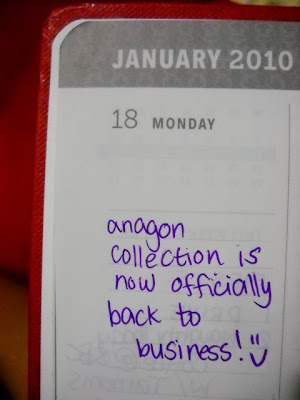 JANUARY 2010
18 MONDAY
anagon
collection is
now officially
back to
business!